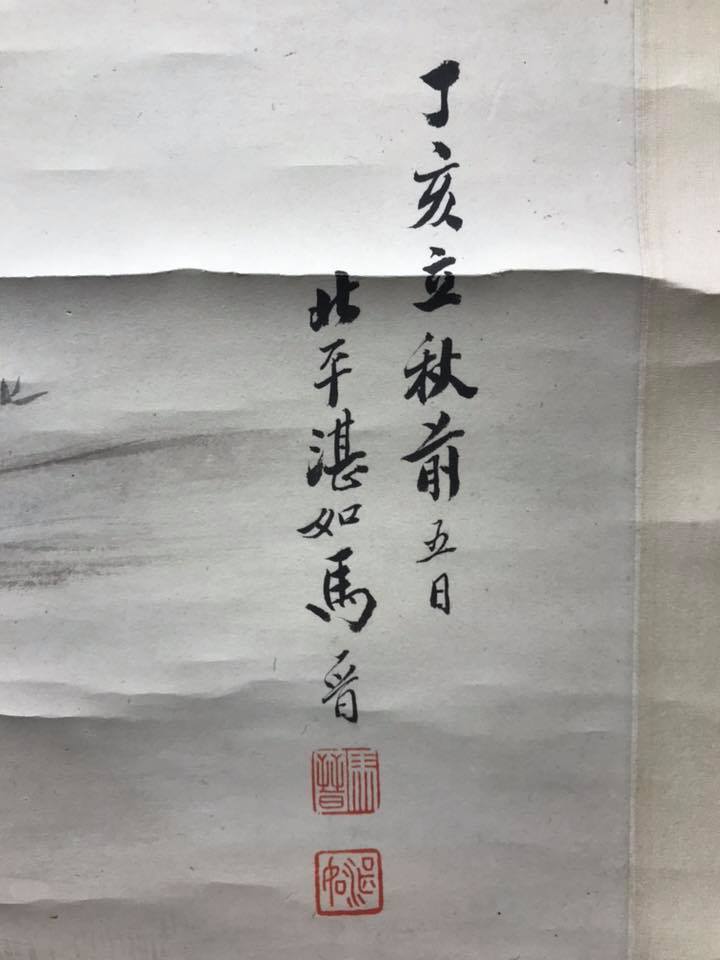 丁亥立秋前五日
北平湛如馬晋
馬晋
湛如